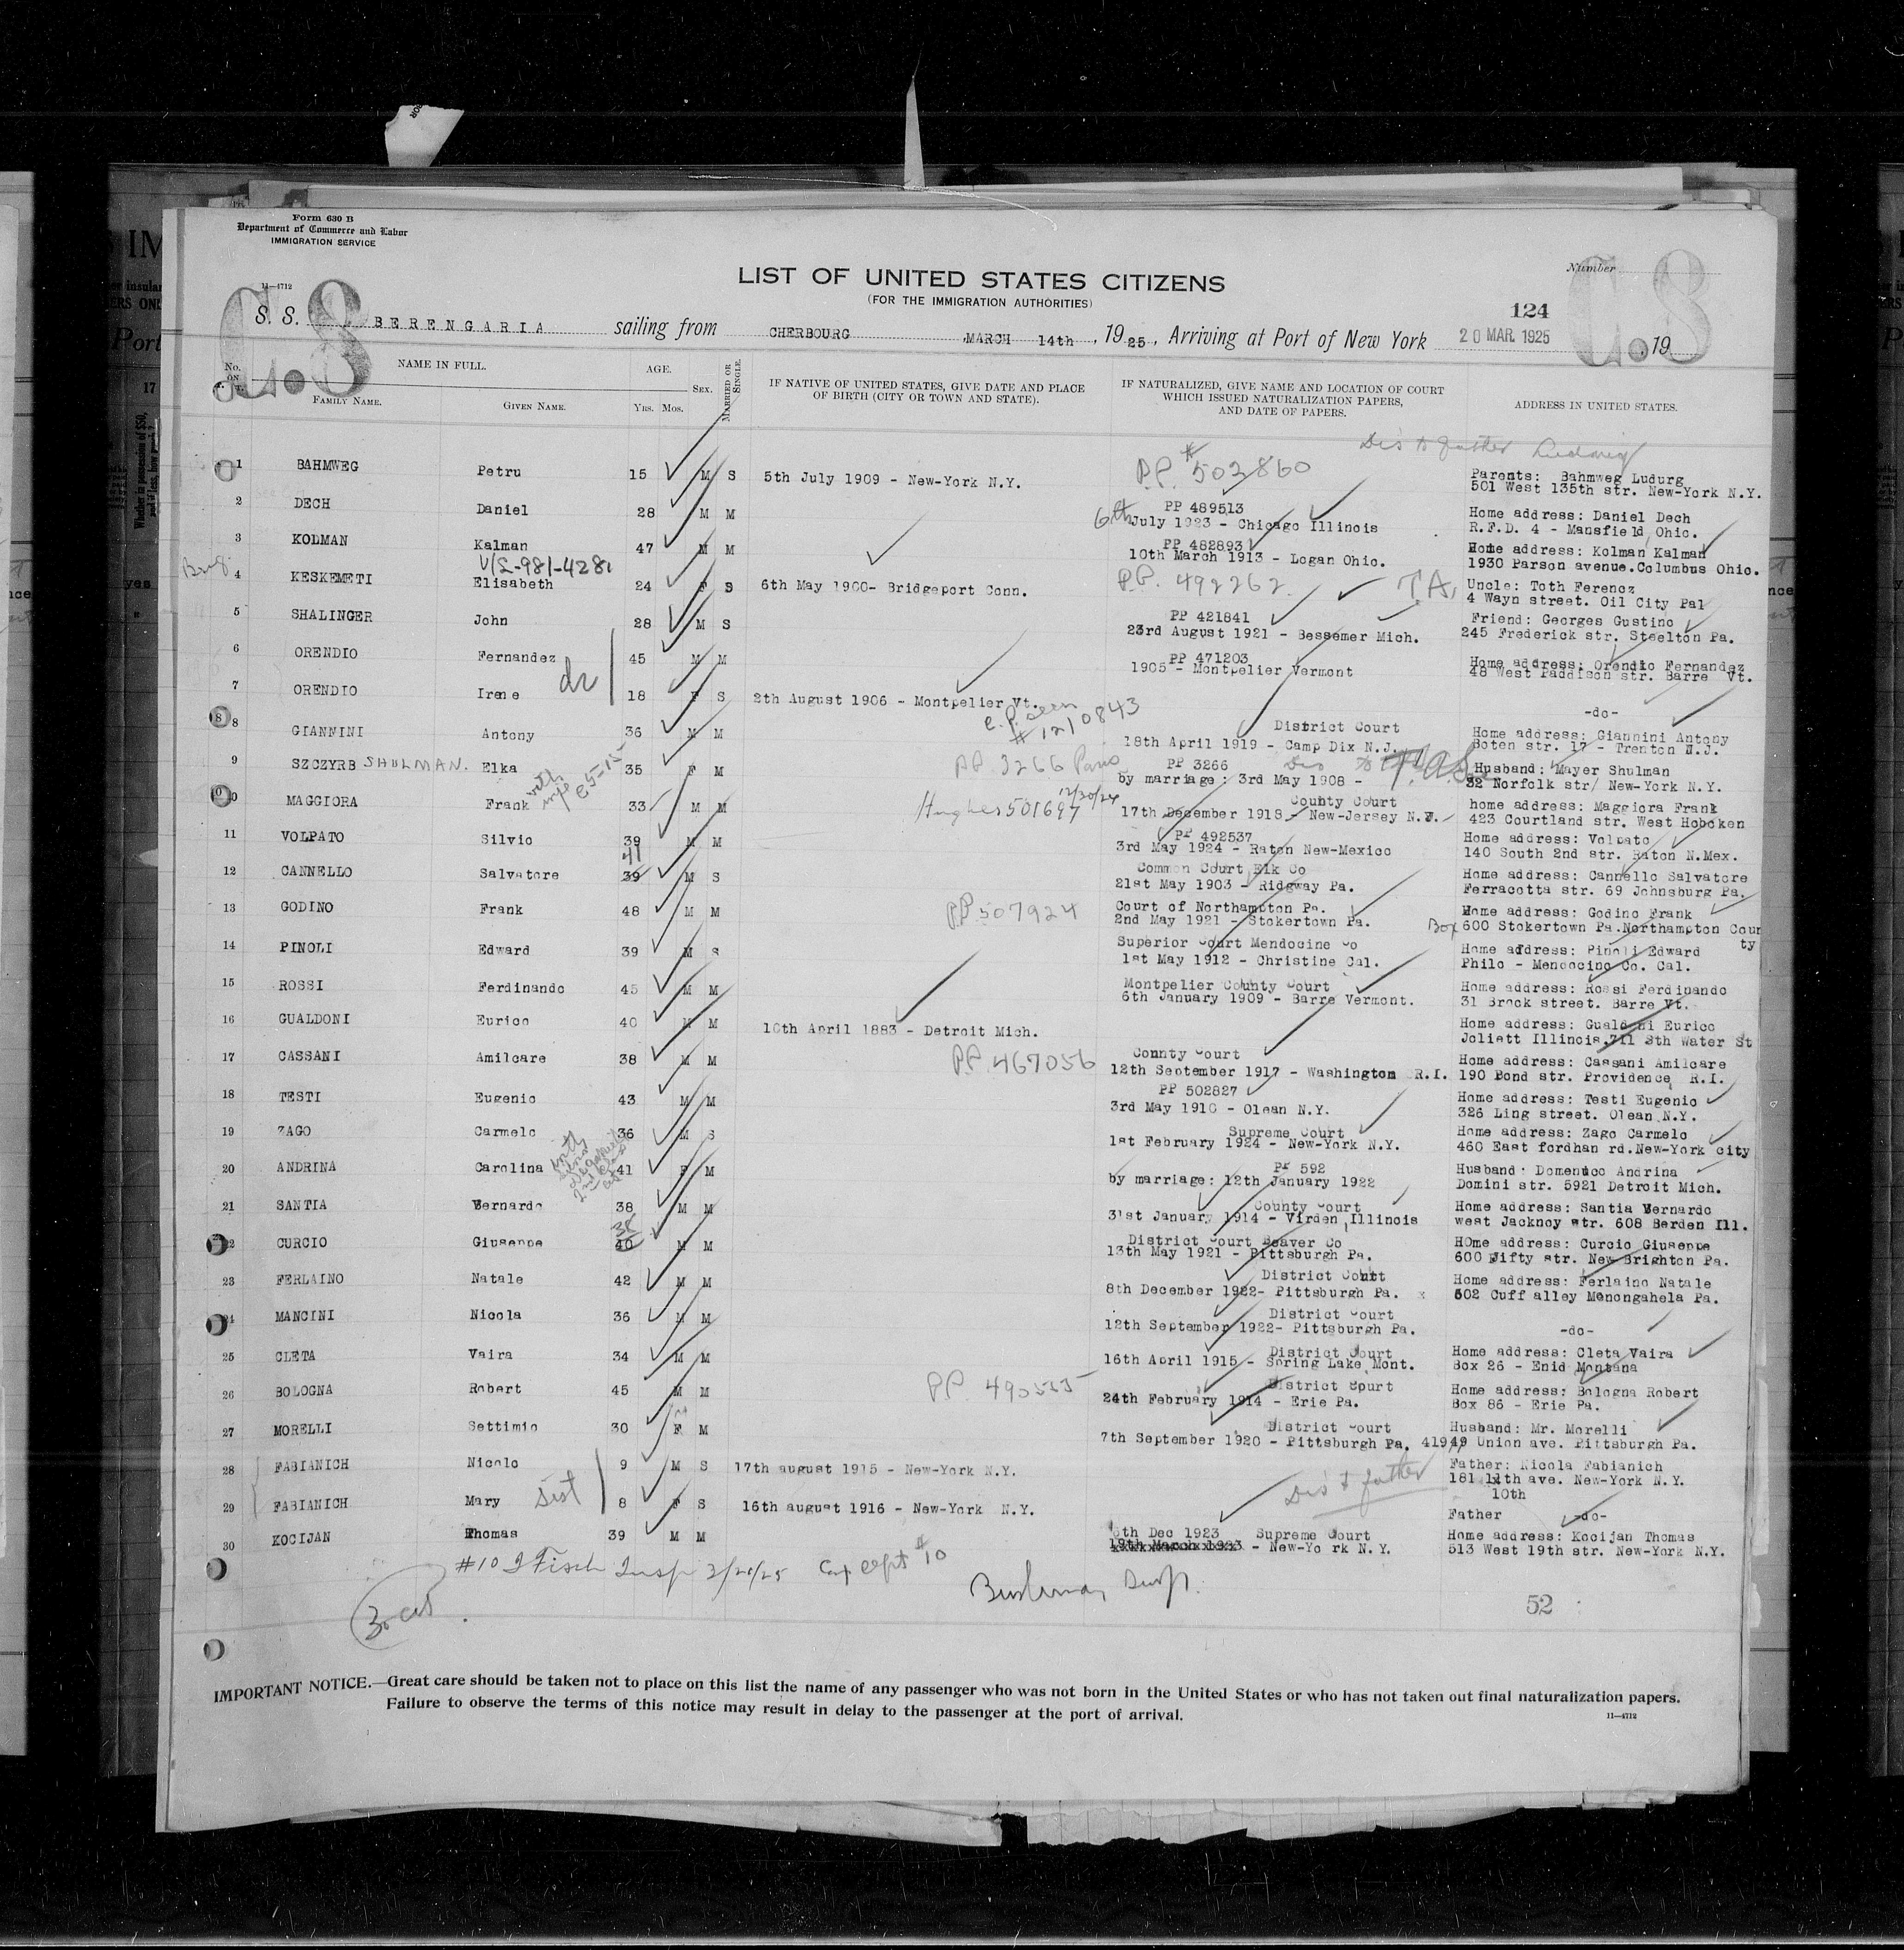 Form 630 B
Department of Commerce and Labor
IMMIGRATION SERVICE
11—4712
LIST OF UNITED STATES CITIZENS
(FOR THE IMMIGRATION AUTHORITIES)
Number
124
S. S. BERENGARIA sailing from CHERBOURG, MARCH 14th, 1925, Arriving at Port of New York 20 MAR. 1925, 19
No. ON NAME IN FULL. AGE. SEX. MARRIED OR SINGLE. IF NATIVE OF UNITED STATES, GIVE DATE AND PLACE OF BIRTH (CITY OR TOWN AND STATE). IF NATURALIZED, GIVE NAME AND LOCATION OF COURT WHICH ISSUED NATURALIZATION PAPERS, AND DATE OF PAPERS. ADDRESS IN UNITED STATES.
FAMILY NAME. GIVEN NAME. YRS. MOS.
Dis to father Ludwig
1 BAHMWEG Petru 15 M S 5th July 1909 - New-York N.Y. P.P. # 502860 Parents: Bahmweg Ludurg
501 West 135th str. New-York N.Y.
2 DECH Daniel 28 M M PP 489513 Home address: Daniel Dech
6th July 1923 - Chicago Illinois R.F.D. 4 - Mansfield, Ohio.
3 KOLMAN Kalman 47 M M PP 482893 Home address: Kolman Kalman
10th March 1913 - Logan Ohio. 1930 Parson avenue.Columbus Ohio.
V/L-981-428
4 KESKEMETI Elisabeth 24 F S 6th May 1900- Bridgeport Conn. P.P. 492262. T.A. Uncle: Toth Ferencz
4 Wayn street. Oil City Pa
5 SHALINGER John 28 M S PP 421841 Friend: Georges Gustino
23rd August 1921 - Bessemer Mich. 245 Frederick str. Steelton Pa.
6 ORENDIO Fernandez 45 M M PP 471203 Home address: Orendio Fernandez
1905 - Montpelier Vermont 48 West Paddison str. Barre Vt.
7 ORENDIO Irene 18 F S 2th August 1906 - Montpelier Vt. -do-
# 1210843
8 GIANNINI Antony 36 M M District Court Home address: Giannini Antony
18th April 1919 - Camp Dix N.J. Boten str. 17 - Trenton N.J.
9 SZCZYRB SHULMAN. Elka 35 F M PP 3266 Paris PP 3266 Husband: Mayer Shulman
by marriage: 3rd May 1908 - 32 Norfolk str/ New-York N.Y.
10 MAGGIORA Frank 33 M M Hughes 501697 12/30/24 County Court home address: Maggiora Frank
17th December 1918 - New-Jersey N.J. 423 Courtland str. West Hoboken
11 VOLPATO Silvio 39 M M PP 492537 Home address: Volpato
3rd May 1924 - Raton New-Mexico 140 South 2nd str. Raton N.Mex.
12 CANNELLO Salvatore 41 39 M S Common Court Elk Co Home address: Cannello Salvatore
21st May 1903 - Ridgway Pa. Ferracotta str. 69 Johnsburg Pa.
13 GODINO Frank 48 M M P.P. 507924 Court of Northampton Pa. Home address: Godino Frank
2nd May 1921 - Stokertown Pa. Box 600 Stokertown Pa.Northampton Coun
ty
14 PINOLI Edward 39 M S Superior Court Mendocine Co Home address: Pinoli Edward
1st May 1912 - Christine Cal. Philo - Mendocino Co. Cal.
15 ROSSI Ferdinando 45 M M Montpelier County Court Home address: Rossi Ferdinando
6th January 1909 - Barre Vermont. 31 Brock street. Barre Vt.
16 GUALDONI Eurico 40 M M 10th April 1883 - Detroit Mich. Home address: Gualdoni Eurico
Joliett Illinois. 711 8th Water St
17 CASSANI Amilcare 38 M M P.P. 467056 County Court Home address: Cassani Amilcare
12th September 1917 - Washington R.I. 190 Bond str. Providence R.I.
18 TESTI Eugenio 43 M M PP 502827 Home address: Testi Eugenio
3rd May 1910 - Olean N.Y. 326 Ling street. Olean N.Y.
19 ZAGO Carmelo 36 M S Supreme Court Home address: Zago Carmelo
1st February 1924 - New-York N.Y. 460 East fordhan rd.New-York city
20 ANDRINA Carolina 41 F M PP 592 Husband: Domenico Andrina
by marriage: 12th January 1922 Domini str. 5921 Detroit Mich.
21 SANTIA Bernardo 38 M M County Court Home address: Santia Bernardo
31st January 1914 - Virden Illinois west Jacknoy str. 608 Berden Ill.
22 CURCIO Giuseppe 38 40 M M District Court Beaver Co HOme address: Curcio Giuseppe
13th May 1921 - Pittsburgh Pa. 600 Fifty str. New Brighton Pa.
23 FERLAINO Natale 42 M M District Court Home address: Ferlaino Natale
8th December 1922- Pittsburgh Pa. 602 Cuff alley Monongahela Pa.
24 MANCINI Nicola 36 M M District Court
12th September 1922- Pittsburgh Pa. -do-
25 CLETA Vaira 34 M M District Court Home address: Cleta Vaira
16th April 1915 - Spring Lake Mont. Box 26 - Enid Montana
26 BOLOGNA Robert 45 M M PP 490535 District Court Home address: Bologna Robert
24th February 1914 - Erie Pa. Box 86 - Erie Pa.
27 MORELLI Settimio 30 F M District Court Husband: Mr. Morelli
7th September 1920 - Pittsburgh Pa. 41949 Union ave. Pittsburgh Pa.
28 FABIANICH Nicolo 9 M S 17th august 1915 - New-York N.Y. Father: Nicola Fabianich
Dis to father 181 11th ave. New-York N.Y.
10th
29 FABIANICH Mary sist 8 F S 16th august 1916 - New-York N.Y. Father -do-
30 KOCIJAN Thomas 39 M M 6th Dec 1923 Supreme Court Home address: Kocijan Thomas
19th March 1933 - New-Yo rk N.Y. 513 West 19th str. New-York N.Y.
#10 J Fisch Insp 3/20/25 except #10
Insp.
30 cit
52
IMPORTANT NOTICE.—Great care should be taken not to place on this list the name of any passenger who was not born in the United States or who has not taken out final naturalization papers.
Failure to observe the terms of this notice may result in delay to the passenger at the port of arrival.
11—4712